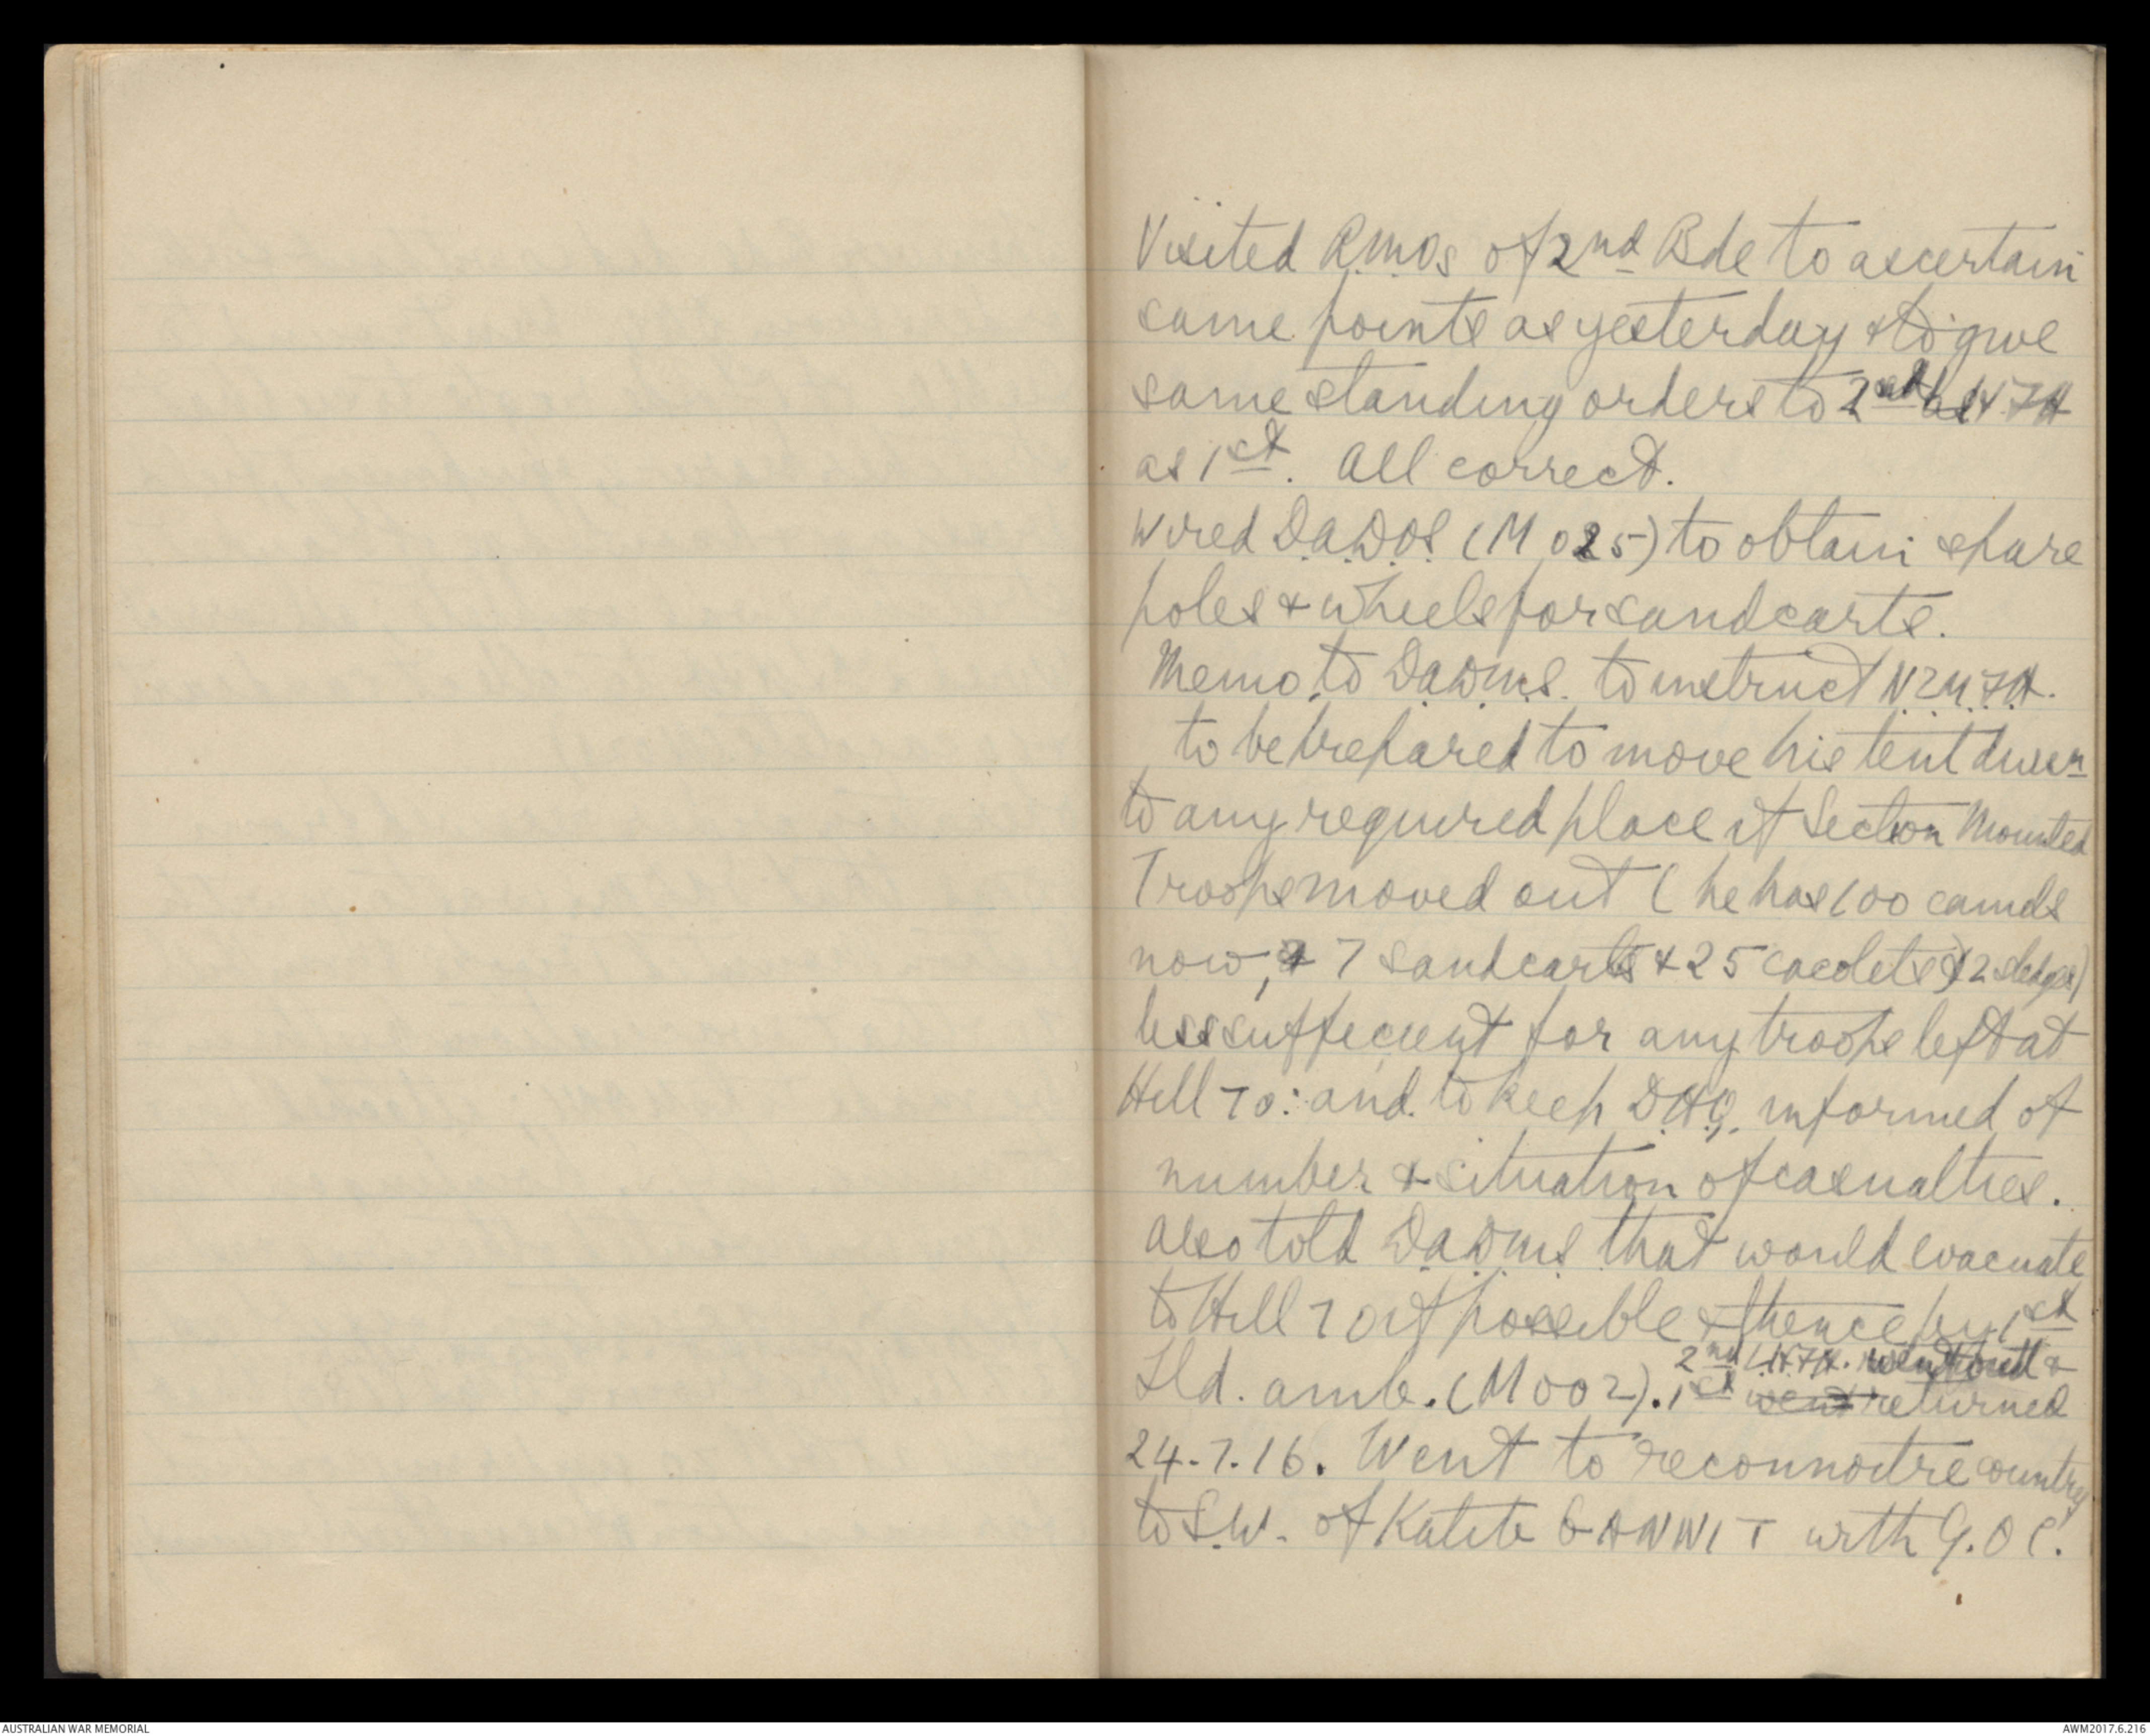 Visited R.M.Os of 2nd Bde to ascertain
same points as yesterday & to give
same standing orders to 2nd LHFA
as 1st. All correct.
Wired D.A.D.O.S. (M 025) to obtain spare
poles & wheels for sandcarts.
Memo. to D.A.D.M.S. to instruct N.Z.M.F.A.
to be prepared to move his tent divsn
to any required place if Section Mounted
Troops moved out (he has 100 camels
now, & 7 sandcarts & 25 cacolets & 12 sledges)
less sufficient for any troops left at
Hill 70: and to keep D.H.Q. informed of
number & situation of casualties.
Also told D.A.D.M.S. that would evacuate
to Hill 70 if possible & thence by 1st
2nd L.H.F.A. went out &
Fld. Amb. (M002). 1st went returned
24.7.16. Went to reconnoitre country
to S.W. of Katib GANNIT with G.O.C.
AUSTRALIAN WAR MEMORIAL
AWM2017.6.216